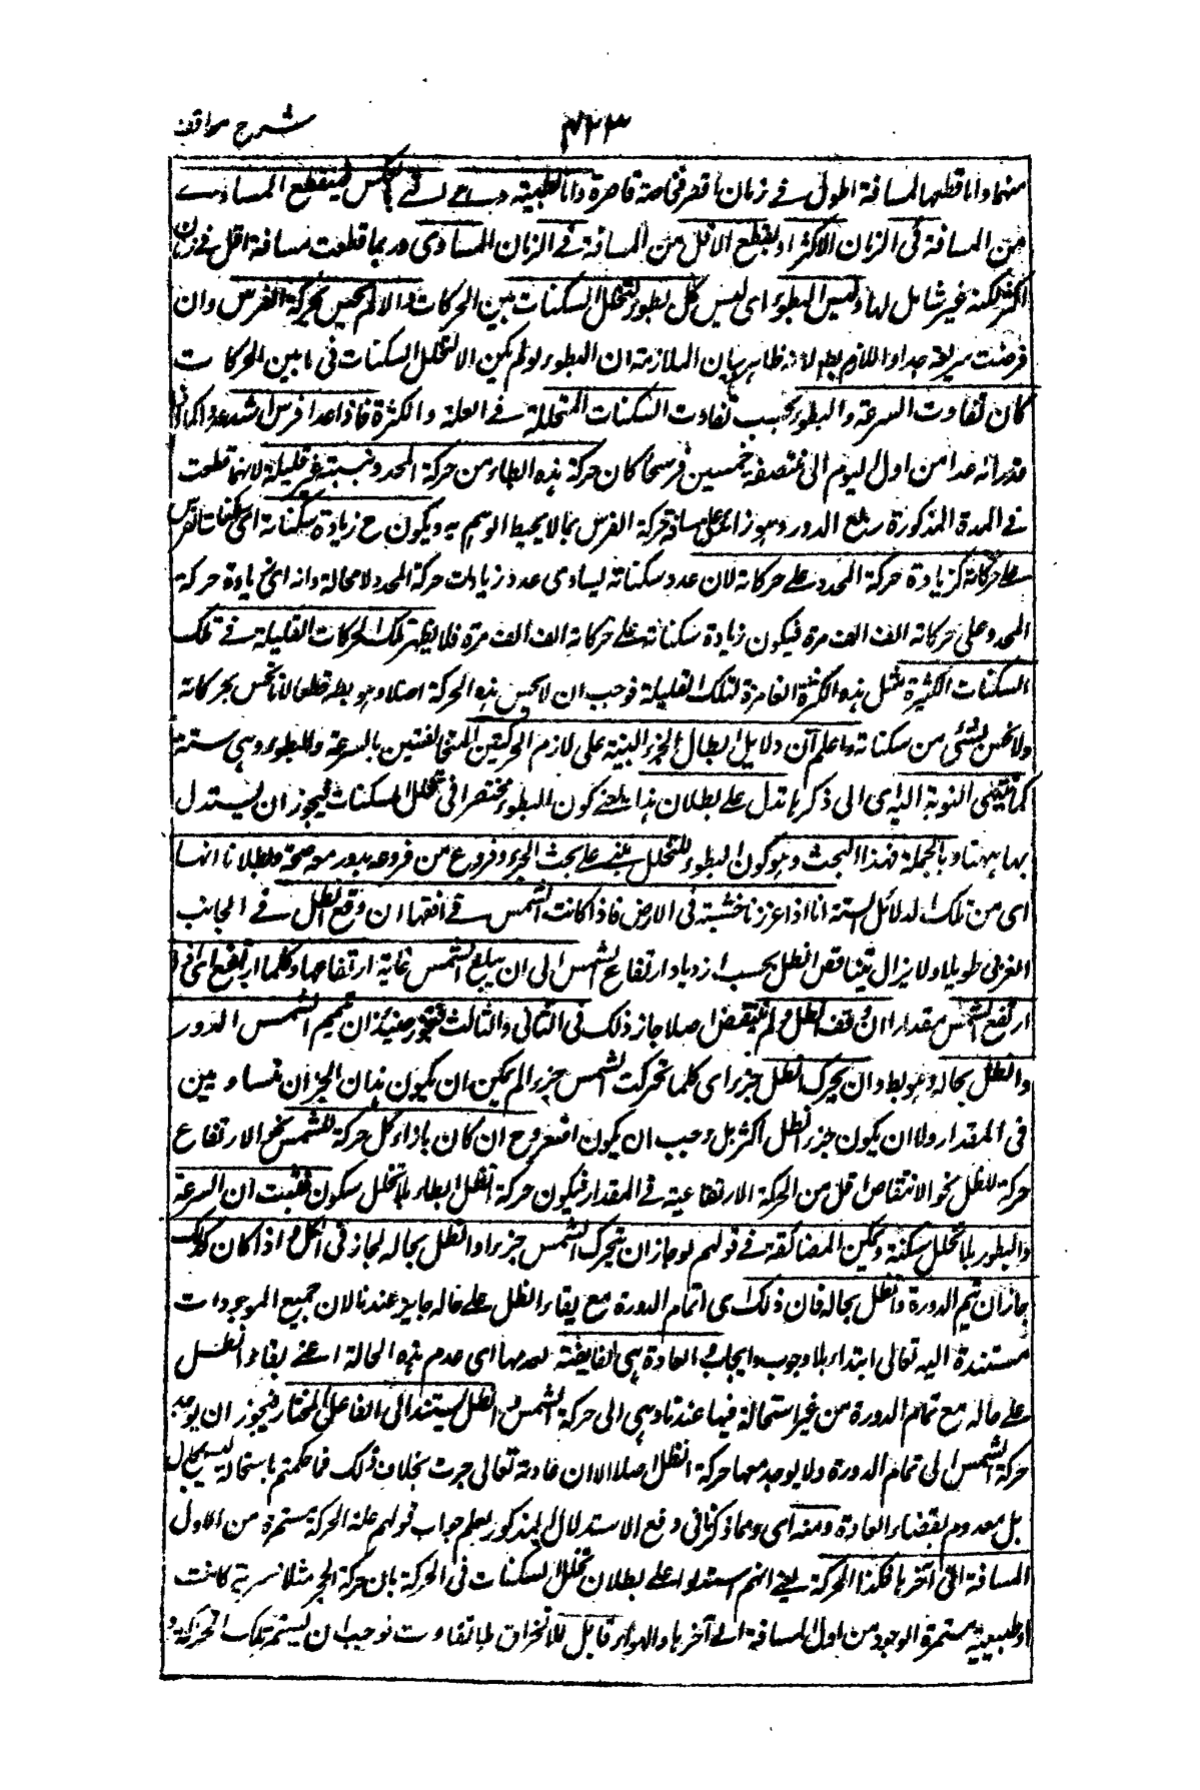 شرح مواقف
٤٣٣
منهما واما قطعها لمسافة اطول في زمان اقصر فخاصة قاصرة واما البطيئة فبالعكس فيقطع المساوى
من المسافة فى الزمان الاكثر او يقطع الاقل من المسافة فى الزمان المساوى وربما قطعت مسافة اقل فى زمان
اكثر لكنه غير شامل لها وليس البطوء اى ليس كل بطوء لتخلل السكنات بين الحركات والا لم يحس بحركة الفرس وان
فرضت سريعة جدا واللازم بط لانه ظاهر بيان الملازمة ان البطوء لو لم يكن الا لتخلل السكنات فى ما بين الحركات
كان تفاوت السرعة والبطوء بحسب تفاوت السكنات المتخللة فى القلة والكثرة فاذا عدا فرس اشد عدو كما اذا
قدر انه عدا من اول اليوم الى منتصفه خمسين فرسخا كان حركة هذه البطاء من حركة المحدد بنسبة غير قليلة لانها قطعت
فى المدة المذكورة ربع الدور وهو زائد على مسافة حركة الفرس بما لا يحيط الوهم به ويكون ح زيادة سكناته اى سكنات الفرس
على حركاته كزيادة حركة المحدد على حركاته لان عدد سكناته يساوى عدد زيادات حركة المحدد لا محالة وانه اى زيادة حركة
المحدد على حركاته الف الف مرة فيكون زيادة سكناته على حركاته الف الف مرة فلا يظهر تلك الحركات القليلة فى تلك
السكنات الكثيرة بمثل هذه الكثرة الغامرة لتلك القليلة فوجب ان لا يحس بهذه الحركة اصلا وهو بط قطعا لانا نحس بحركاته
ولا نحس بشئ من سكناته واعلم ان دلايل ابطال الجزء المبنية على لازم الحركتين المتخالفتين بالسرعة والبطوء وهى ستة
كما تنتهى النوبة الى ذكرها تدل على بطلان هذا يعنى كون البطوء منحصرا فى تخلل السكنات فيجوز ان يستدل
بها ههنا وبالجملة فهذا البحث وهو كون البطوء للتخلل يبتنى على بحث الجزء وفروع من فروعه يدور معه صحة وبطلانا انها
اى من تلك الدلائل الستة انا اذا غرزنا خشبة فى الارض فاذا كانت الشمس فى افقها ان وقع الظل فى الجانب
الغربى طويلا ولا يزال يتناقص الظل بحسب ازدياد ارتفاع الشمس الى ان يبلغ الشمس غاية ارتفاعها وكلما ارتفع
ارتفع الشمس مقدارا ان وقف الظل ولم ينتقص اصلا جاز ذلك فى الثانى والثالث فيجوز حينئذ ان يتم الشمس الدور
والظل بحاله وهو بط وان يحرك الظل جزء اى كلما تحركت الشمس جزء لم يمكن ان يكون هذان الجزءان متساويين
فى المقدار ولا ان يكون جزء الظل اكثر بل وجب ان يكون اصغر وح ان كان بازاء كل حركة للشمس نحو الارتفاع
حركة للظل نحو الانتقاص اقل من الحركة الارتفاعية فى المقدار فيكون حركة الظل ابطاء بلا تخلل سكون فثبت ان السرعة
والبطوء بلا تخلل سكنة ويمكن المضائقة فى قولهم لو جاز ان يتحرك الشمس جزءا والظل بحاله لجاز فى الكل واذا كان كذلك
جاز ان يتم الدورة والظل بحاله فان ذلك اى اتمام الدورة مع بقاء الظل على حاله جايز عندنا لان جميع الموجودات
مستندة اليه تعالى ابتداء بلا وجوب وايجاب والعادة هى القاضية بعدمها اى عدم هذه الحالة اعنى بقاء الظل
على حاله مع تمام الدورة من غير استحالة فيها عندنا وهى الى حركة الشمس والظل يستند الى الفاعل المختار فيجوز ان يوجد
حركة الشمس الى تمام الدورة ولا يوجد معها حركة الظل اصلا الا ان عادته تعالى جرت بخلاف ذلك فما حكمتم باستحالته ليس بمحال
بل معدوم بقضاء العادة ومنه اى ومما ذكرنا فى دفع الاستدلال المذكور يعلم جواب قولهم علة الحركة مستمرة من الاول
المسافة الى آخرها فكذا الحركة يعنى انهم استدلوا على بطلان تخلل السكنات فى الحركة بان حركة الحجر مثلا قسرية كانت
او طبيعية مستمرة الوجود من اول المسافة الى آخرها والهواء قابل للانخراق بلا تفاوت فوجب ان يستمر تلك الحركة